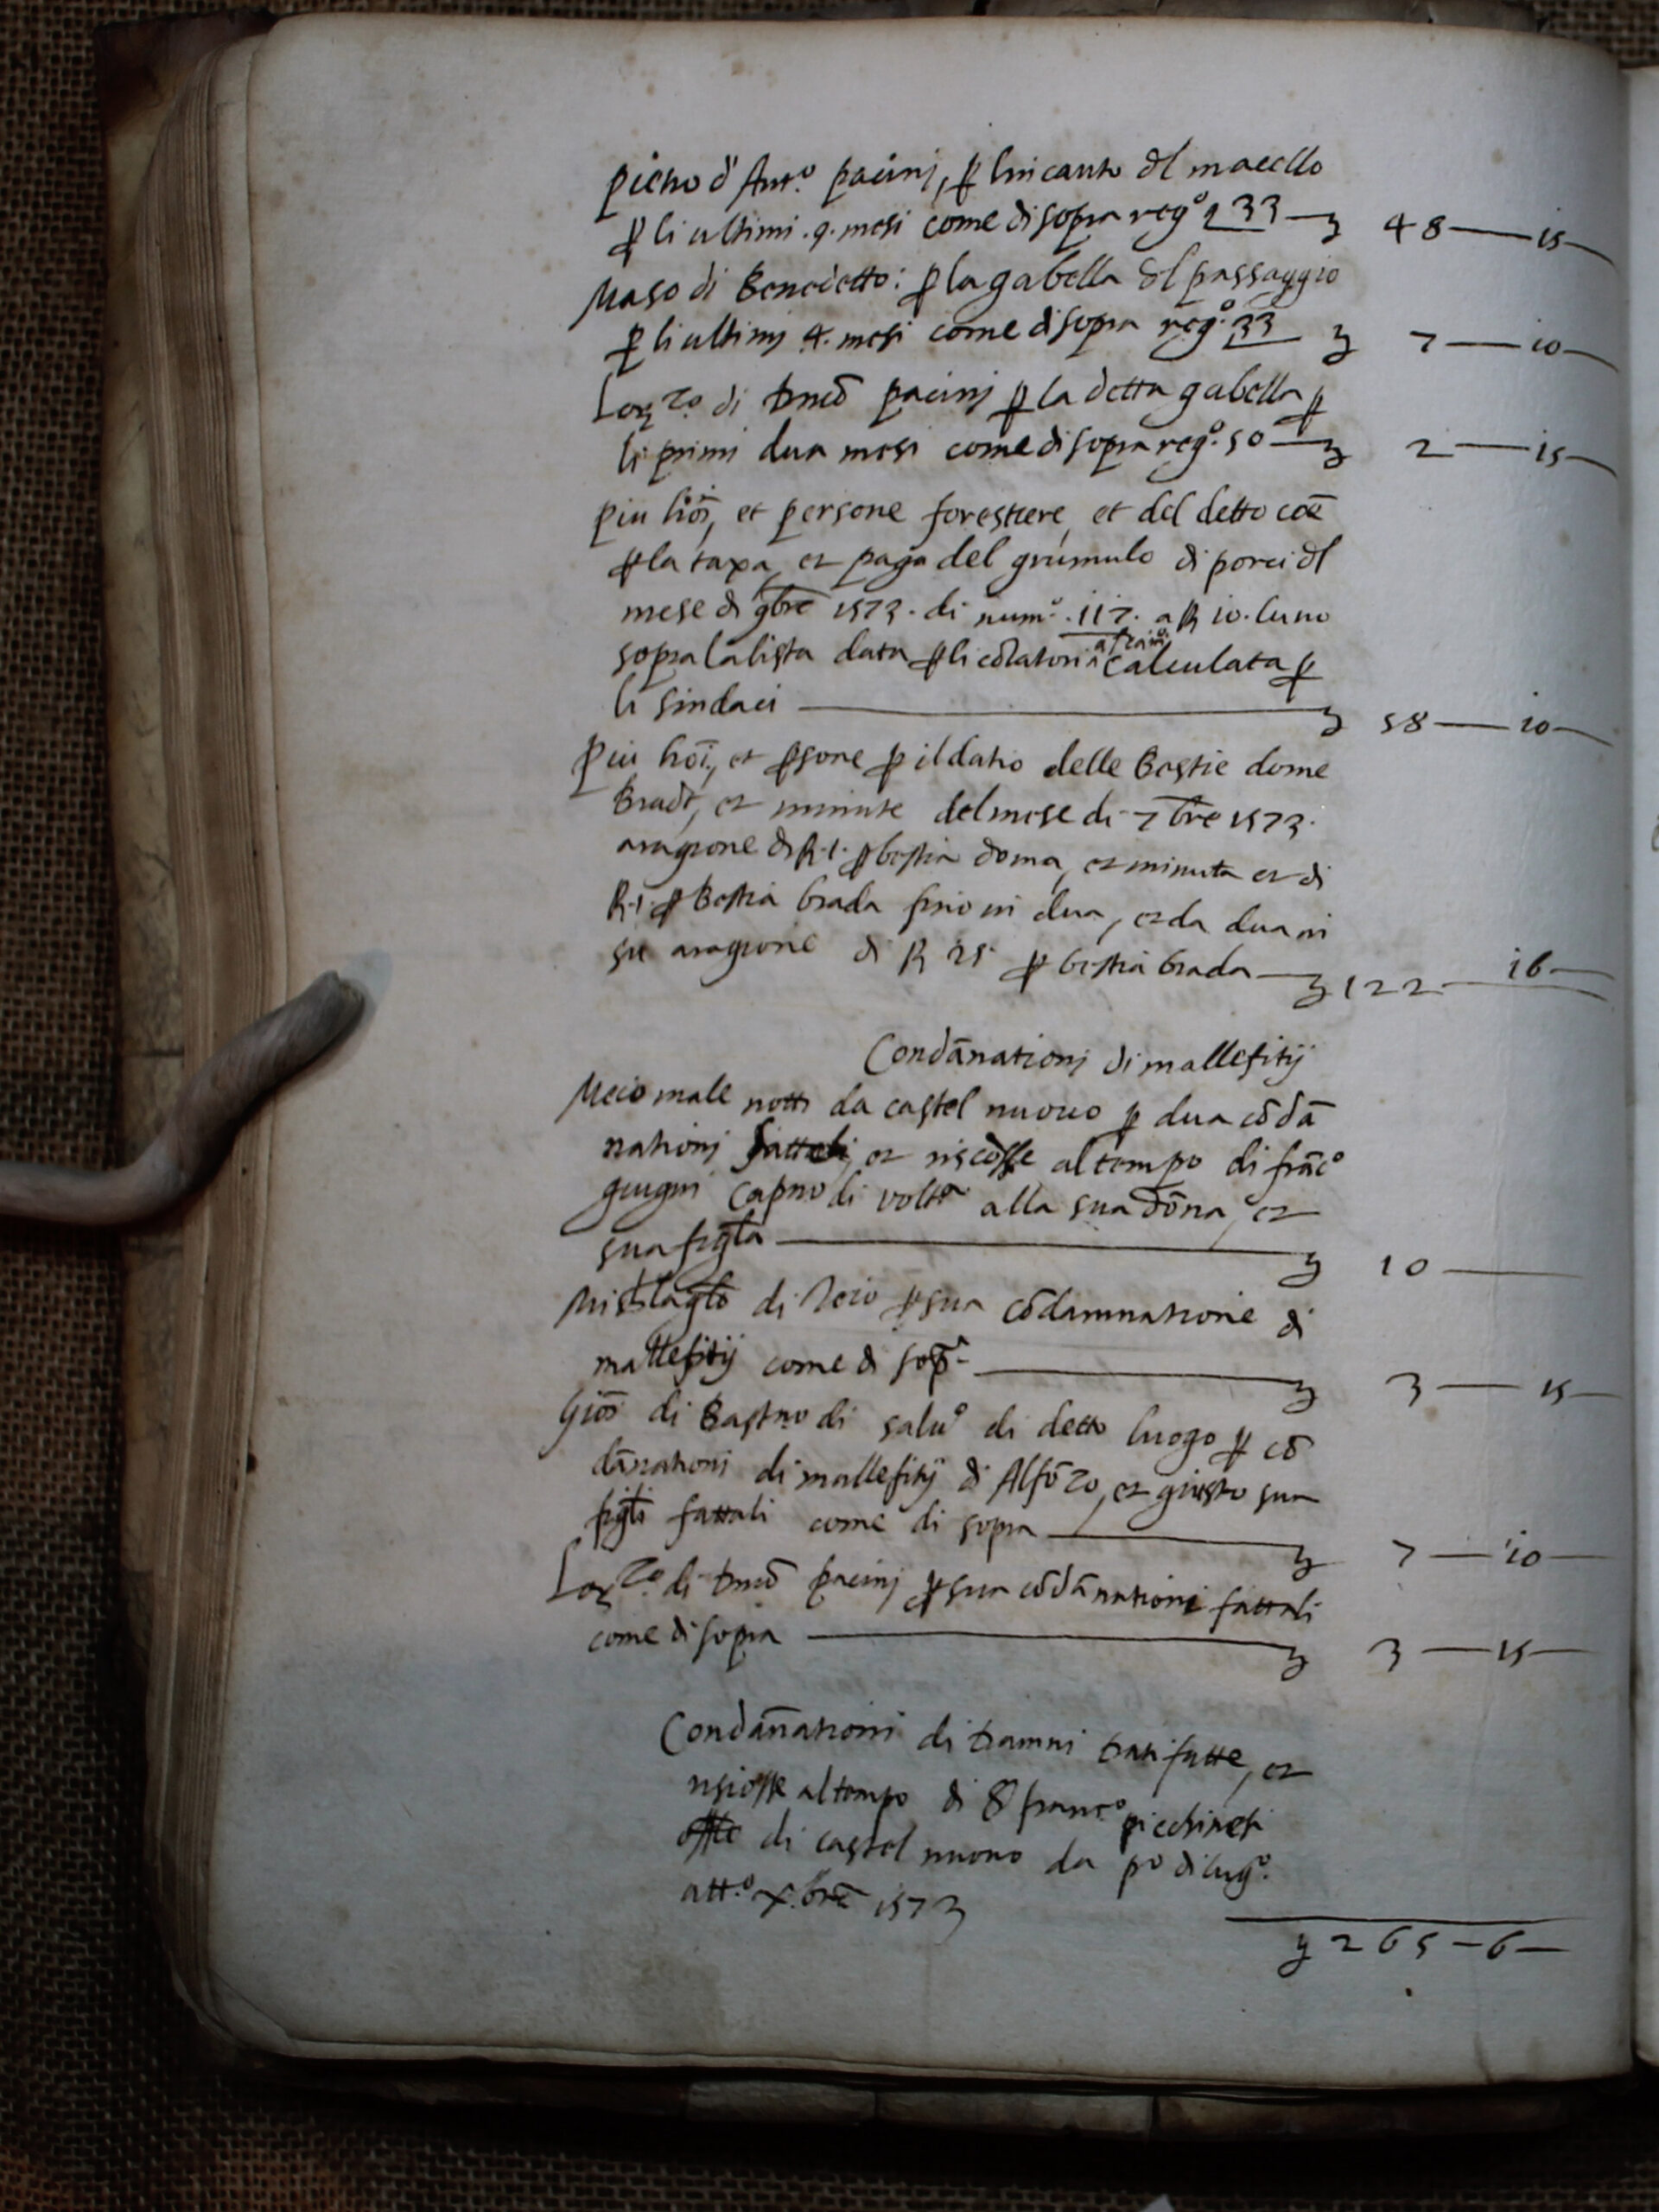 pietro d' Ant.º pacinj, ꝑ lincanto dl macello
ꝑ li ultimi .9. mesi come di sopra regº 133 — ȝ 48 — 15 —
Maso di Benedetto: ꝑ la gabella dl passaggio
ꝑ li ultimj 4. mesi come di sopra regº. 33 ȝ 7 — 10 —
Lorzo. di Dmcō pacinj ꝑ la detta gabella ꝑ
li primi dua mesi come di sopra regº. 50 — ȝ 2 — 15 —
piu hoī, et persone forestiere, et del detto coē
ꝑ la taxa, et paga del grumulo di porci dl
mese di 9bre 1573. di numº. 117. a R 10. luno
sopra la lista data ꝑ li colatori calculata ꝑ
li sindaci — ȝ 58 — 10 —
piu hoī, et ꝑsone ꝑ il datio delle Bestie dome
Brade, et minute del mese di 7bre 1573.
a ragione di R. 1. ꝑ bestia doma, et minuta et di
R. 1. ꝑ Bestia brada fino in dua, et da dua in
su a ragione di R 25 ꝑ bestia brada — ȝ 122 — 16 —
Condānationj di mallefitij
Meio male notti da castel nuovo ꝑ dua cōdā
nationj fatteli, et riscosse al tempo di frācº
giugni capno di voltª alla sua dōna, et
sua figlª — ȝ 10 —
di Meio ꝑ sua cōdamnatione di
mallefitij come di sopª — ȝ 3 — 15 —
Giōi di Bastno di salvº di detto luogo ꝑ cō
dānationi di mallefitij di Alfōzo, et giusto sua
figlī fattali come di sopra — ȝ 7 — 10 —
Lorzo. di Dmcō pacinj ꝑ sua cōdānationi fattali
come di sopra — ȝ 3 — 15 —
Condānationi di Damni Dati fatte, et
riscosse al tempo di S francº. picchinesi
offle di castel nuovo da pº di lugº.
att.º x.bre 1573
ȝ 265 — 6 —